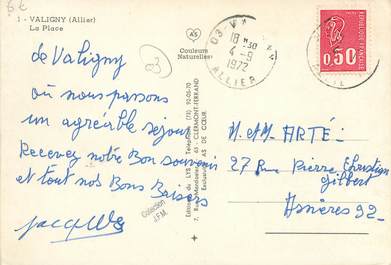 6€
1 - VALIGNY (Allier)
La Place
de Valigny
où nous passons
un agréable séjour
Recevez notre Bon souvenir
et tout nos Bons Baisers
Jacques
03
AS
Couleurs
Naturelles
Editions du LYS - Téléphone (73) 92-05-70
63 - CLERMONT-FERRAND
AS DE CŒUR
Collection
J.F.M.
03 V
18 30
4 - 9
1972
ALLIER
REPUBLIQUE FRANÇAISE
0,50
M. et M. ARTÉ
27 Rue Pierre Christian
Gilbert
Asnières 92